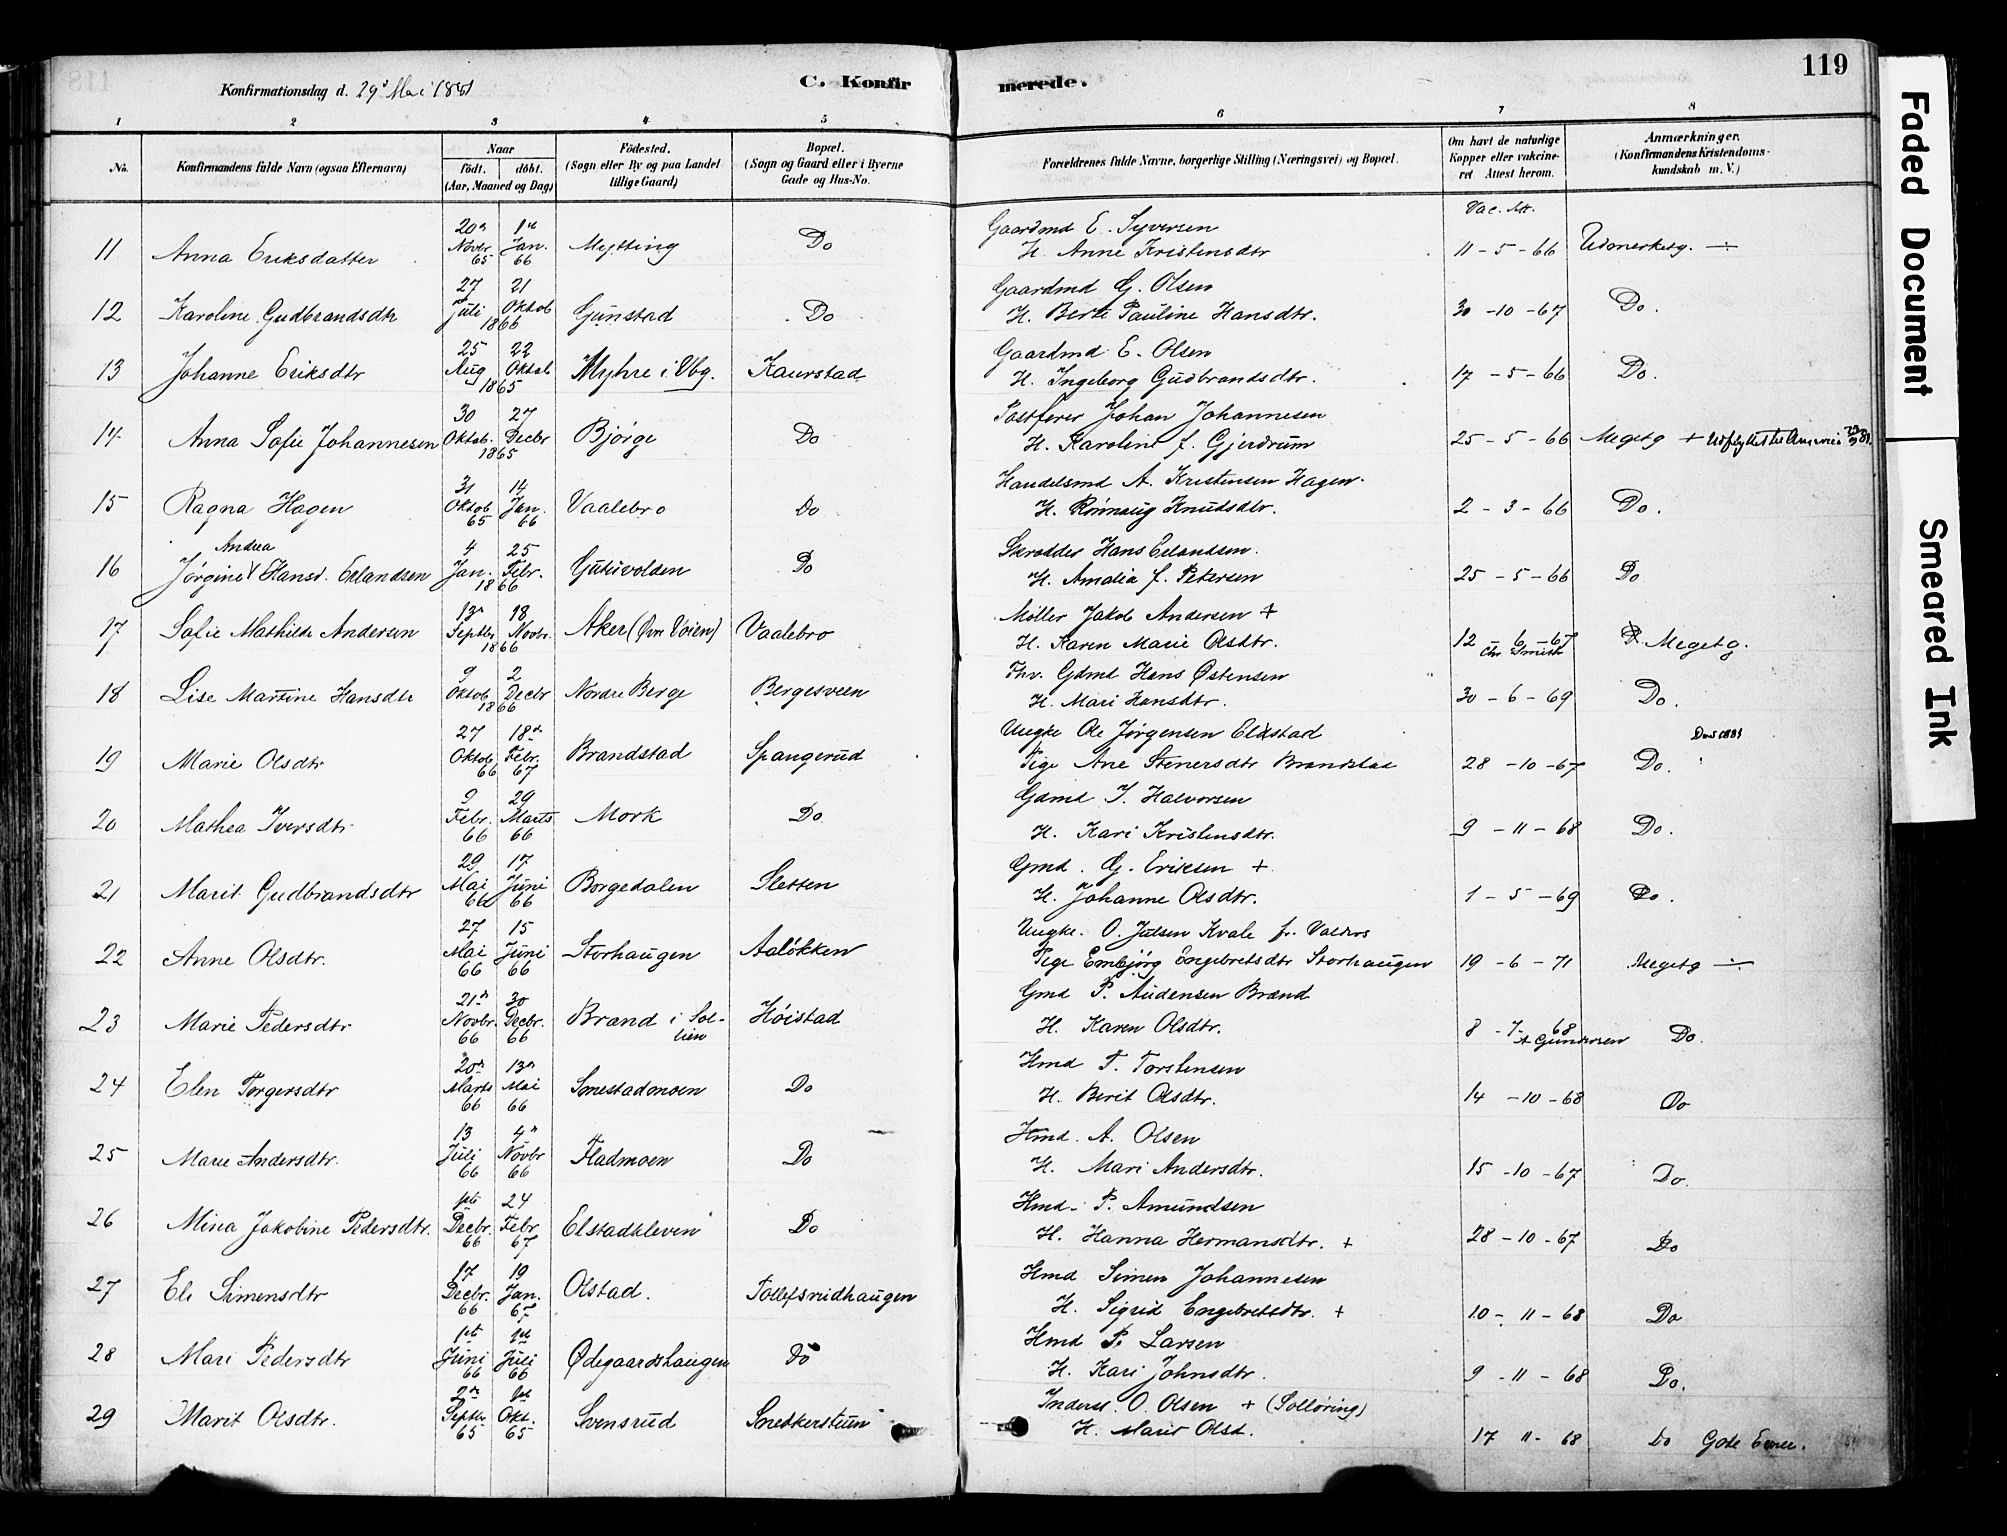 119
Konfirmationsdag d. 29de Mai 1881
C. Konfir merede.
1 2 3 4 5 6 7 8
No. Konfirmandens fulde Navn (ogsaa Efternavn) Naar født. døbt. (Aar, Maaned og Dag) Fødested. (Sogn eller By og paa Landet tillige Gaard) Bopæl. (Sogn og Gaard eller i Byerne Gade og Hus-No.) Forældrenes fulde Navne, borgerlige Stilling (Næringsvei) og Bopæl. Om havt de naturlige Kopper eller vakcineret Attest herom. Anmærkninger. (Konfirmandens Kristendomskundskab m. V.)
Vac. Att.
11 Anna Eriksdatter 20de Novbr. 65 1ste Jan. 66 Mytting Do Gaardmd E. Syversen
H. Anne Kristensdtr 11-5-66 Udmerketg. ÷
12 Karoline Gudbrandsdtr 27 Juli 21 Oktob 1866 Gunstad Do Gaardmd G. Olsen
H. Berte Pauline Hansdtr. 30-10-67 Do.
13 Johanne Eriksdtr 25 Aug 22 Oktob 1865 Myhre i Vbg. Kaurstad Gaardmd E. Olsen
H. Ingeborg Gudbrandsdtr. 17-5-66 Do.
14 Anna Sofie Johannesen 30 Oktob. 27 Decbr 1865 Bjørge Do Postfører Johan Johannesen
H. Karoline f. Gjerdrum 25-5-66 Megetg +
15 Ragna Hagen 31 Oktob 65 14 Jan. 66 Vaalebro Do Handelsmd A. Kristensen Hagen.
H. Rönnaug Knudsdtr. 2-3-66 Do.
16 Jørgine Andrea Hansd. Erlandsen 4 Jan. 25 Febr. 1866 Gutuvolden Do Skrædder Hans Erlandsen.
H. Amalia f. Petersen 25-5-66 Do
17 Sofie Mathilde Andersen 13de Septbr 18 Novbr. 1866 Aker (Øvre Voien) Vaalebro Møller Jakob Andersen +
H. Karen Marie Olsdtr. 12-6-67 Chr Smith Megetg.
18 Lise Martine Hansdtr 9 Oktob 2 Decbr 1866 Nordre Berge Bergesveen Fhv. Gdmd Hans Østensen
H. Mari Hansdtr. 30-6-69 Do.
19 Marie Olsdtr 27 Oktob 66 18de Febr. 67 Brandstad Spangerud Ungke Ole Jørgensen Elstad
Pige Ane Stenersdtr Brandstad 28-10-67 Do.
20 Mathea Iversdtr 9 Febr. 66 29 Marts 66 Mork Do Gdmd I. Halvorsen
H. Kari Kristensdtr. 9-11-68 Do.
21 Marit Gudbrandsdtr 29 Mai 66 17 Juni 66 Borgedalen Sletten Gmd. G. Eriksen +
H. Johanne Olsdtr. 1-5-69 Do.
22 Anne Olsdtr. 27 Mai 66 15 Juni 66 Storhaugen Aaløkken Ungke. O. Julsen Kvale fr. Valders
Pige Embjørg Engebretsdtr Storhaugen 19-6-71 Megetg ÷
23 Marie Pedersdtr 21de Novbr. 66 30 Decbr. 66 Brand i Sollien Høistad Gmd P. Audensen Brænd
H. Karen Olsdtr. 8-7-68 A Gundersen Do.
24 Elen Torgersdtr 20de Marts 66 13de Mai 66 Smestadmoen Do Hmd T. Torstensen
H. Berit Olsdtr. 14-10-68 Do
25 Marie Andersdtr. 13 Juli 66 4de Novbr 66 Fladmoen Do Hmd. A. Olsen
H. Mari Andersdtr. 15-10-67 Do.
26 Mina Jakobine Pedersdtr. 1ste Decbr. 66 24 Febr 67 Elstadkleven Do Hmd. P. Amundsen
H. Hanna Hermansdtr. + 28-10-67 Do
27 Eli Simensdtr 17 Decbr. 66 19 Jan. 67 Olstad. Tollefsrudhaugen Hmd Simen Johannesen
H. Sigrid Engebretsdtr. + 10-11-68 Do
28 Mari Pedersdtr 1ste Juni 66 1ste Juli 66 Ødegaardshaugen Do Hmd P. Larsen
H. Kari Johnsdtr. 9-11-68 Do.
29 Marit Olsdtr. 2den Septbr 65 1ste Okt. 65 Svensrud Snedkerstuen Inderst. O. Olsen + (Solløring)
H. Marit Olsd. 17 11-68 Do Gode Evner.
Faded Document
Smeared Ink